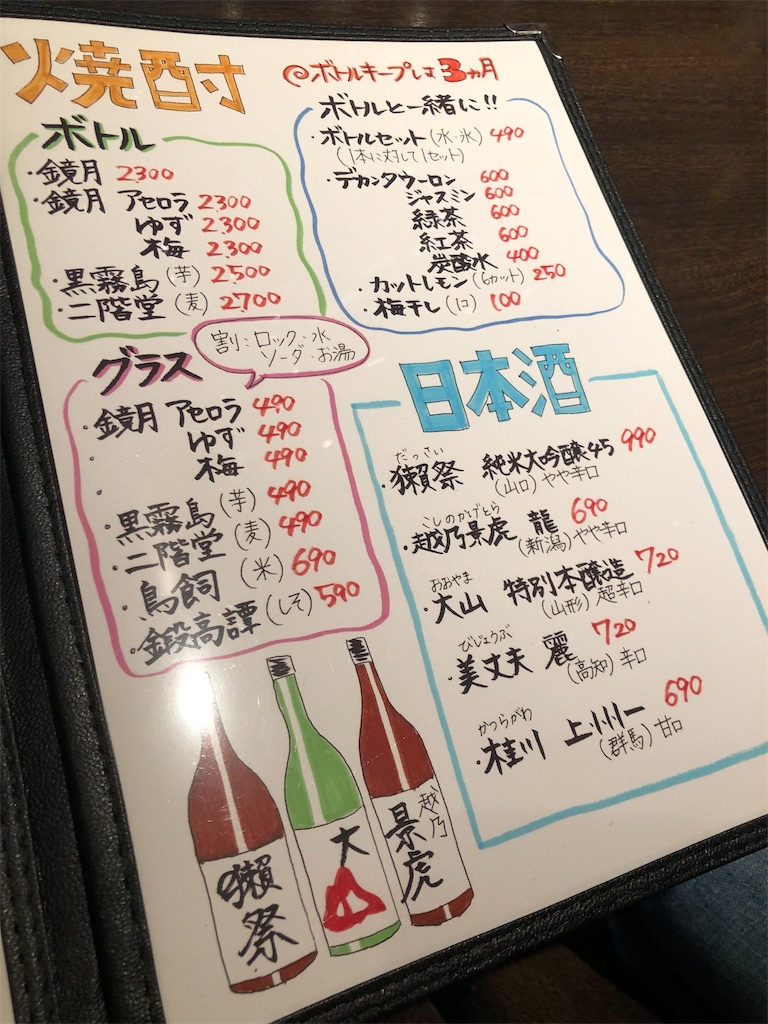 焼酎
@ボトルキープは3ヵ月
ボトル
・鏡月 2300
・鏡月 アセロラ 2300
ゆず 2300
梅 2300
・黒霧島(芋) 2500
・二階堂(麦) 2700
ボトルと一緒に!!
・ボトルセット(水・氷) 490
(1本に対して1セット)
・デカンタウーロン 600
ジャスミン 600
緑茶 600
紅茶 600
炭酸水 400
・カットレモン(6カット) 250
・梅干し(1コ) 100
グラス
割:ロック・水
ソーダ・お湯
・鏡月 アセロラ 490
・ゆず 490
・梅 490
・黒霧島(芋) 490
・二階堂(麦) 490
・鳥飼(米) 690
・鍛高譚(しそ) 590
日本酒
だっさい
・獺祭 純米大吟醸45 990
(山口)やや辛口
こしのかげとら
・越乃景虎 龍 690
(新潟)やや辛口
おおやま
・大山 特別本醸造 720
(山形)超辛口
びじょうぶ
・美丈夫 麗 720
(高知)辛口
かつらがわ
・桂川 上州一 690
(群馬)甘口
獺祭
大山
越乃
景虎